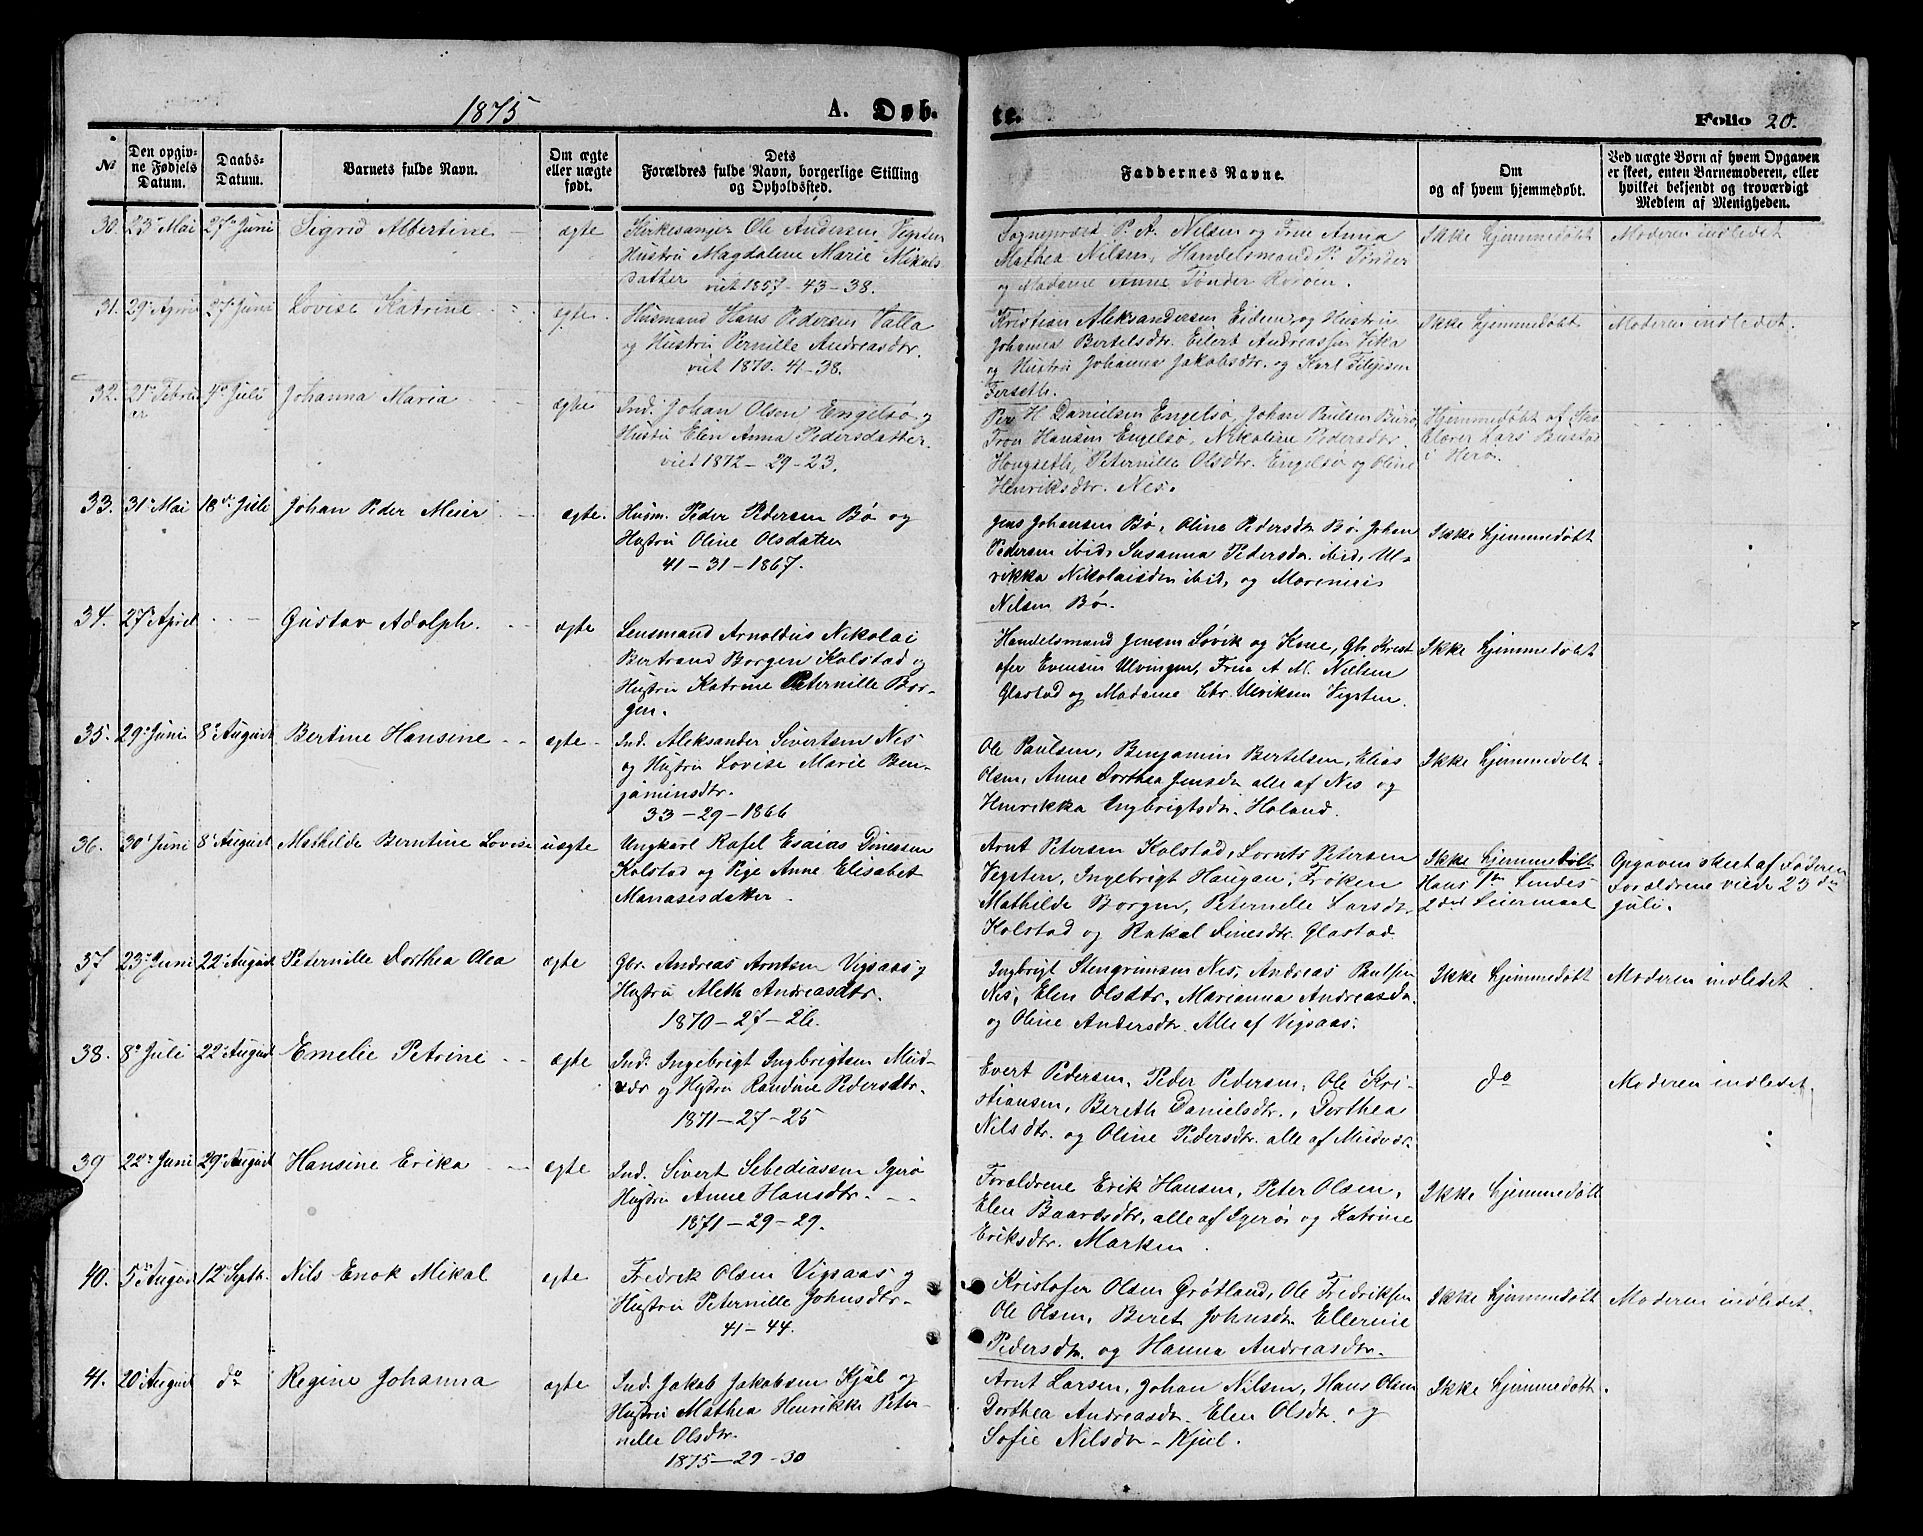 1875 A. Døbte. Folio 20.
No
Den opgivne Fødsels Datum.
Daabs-Datum.
Barnets fulde Navn.
Om ægte eller uægte født.
Dets Forældres fulde Navn, borgerlige Stilling og Opholdssted.
Faddernes Navne.
Om og af hvem hjemmedøbt.
Ved uægte Børn af hvem Opgaven er skeet, enten Barnemoderen, eller hvilket bekjendt og troværdigt Medlem af Menigheden.
30. 23de Mai 27de Juni Sigrid Albertine ægte
Kirkesanger Ole Andersen Vegsten
Hustru Magdalene Marie Mikals
datter
viet 1857 - 43 - 38.
Sogneprest P. A. Nilsen og Frue Anna
Mathea Nilsen, Handelsmand P. Tønder
og Madame Anne Tønder
Ikke hjemmedøbt
Moderen indledet
31. 29de April 27de Juni Lovise Katrine ægte
Husmand Hans Pedersen Valla
og Hustru Pernille Andreasdtr.
viet 1870. 41 - 38.
Kristian Aleksandersen og Hustru
Johanna Bertelsdtr. Eilert Andreassen Vika
og Hustru Johanna Jakobsdtr. og Karl Filipsen
Ferseth.
Ikke hjemmedøbt
Moderen indledet.
32. 21de Februer 4de Juli Johanna Maria ægte
Ind. Johan Olsen Engelsø og
Hustru Elen Anna Pedersdatter.
viet 1872 - 29 - 23.
Per H. Danielsen Engelsø, Johan Paulsen Burø,
Tron Hansen Engelsø, Nikoline Pedersdtr.
Hongseth, Peternille Olsdtr. Engelsø og Oline
Henriksdtr. Nes.
Hjemmedøbt af
Lars
i Herø.
33. 31te Mai 18de Juli Johan Peder Meier ægte.
Husm. Peder Pedersen Bø og
Hustru Oline Olsdatter
41 - 31 - 1867.
Jens Johansen Bø, Oline Pedersdtr Bø. Johan
Pedersen ibid, Susanna Pedersdtr. ibid, Ul-
rikka Nikolaisdtr ibid, og Morenius
Nilsen Bø.
Ikke hjemmedøbt
34. 27de April Gustav Adolph. ægte
Lensmand Arnoldus Nikolai
Bertrand Borgen Kolstad og
Hustru Katrine Peternille Bor-
gen.
Handelsmand Jensen Søvik og Kone, Gbr. Krist
ofer Evensen Ulvingen, Frue A. M. Nilsen
Glastad og Madame Chr. Ulriksen Vegsten.
Ikke hjemmedøbt
35. 29de Juni 8de August Bertine Hansine ægte
Ind. Aleksander Sivertsen Nes
og Hustru Lovise Marie Ben-
jaminsdtr.
33 - 29 - 1866
Ole Paulsen, Benjamin Bertelsen, Elias
Olsen, Anne Dorthea Jensdtr alle af Nes og
Henrikka Ingbrigtsdtr. Holand.
Ikke hjemmedøbt.
36. 30te Juni 8de August Mathilde Berntine Lovise uægte
Ungkarl Rafel Esaias Dinessen
Kolstad og Pige Anne Elisabet
Manasesdatter.
Arnt Petersen Kolstad, Lornts Petersen
Vegsten, Ingebrigt Haugan, Frøken
Mathilde Borgen, Peternille Larsdtr.
Kolstad og Rakel Dinesdtr. Glastad.
Ikke hjemmedøbt
Hans 1ste Hendes
2det Leiermaal
Opgaven skeet af Faderen
Forældrene viede 25de
Juli.
37 23de Juni 22de August Peternille Dorthea Olea ægte
Gbr. Andreas Arntsen Vigsaas og
Hustru Aleth Andreasdtr.
1870 - 27 - 26.
Ingbrigt Stengrimsen Nes, Andreas Paulsen
Nes, Elen Olsdtr, Marianna Andreasdtr.
og Oline Andersdtr. Alle af Vigsaas.
Ikke hjemmedøbt
Moderen indledet
38. 8de Juli 22de August Emelie Petrine ægte
Ind. Ingebrigt Ingbrigtsen Mud-
vær og Hustru Randine Pedersdtr.
1871 - 27 - 25
Evert Pedersen, Peder Pedersen, Ole Kri-
stiansen, Bereth Danielsdtr., Dorthea
Nilsdtr. og Oline Pedersdtr. alle af Mudvær.
do
Moderen indledet.
39 22de Juni 29de August Hansine Erika ægte
Ind. Sivert Sebediassen Igerø
Hustru Anne Hansdtr.
1871 - 29 - 29.
Forældrene Erik Hansen, Peter Olsen,
Elen Baardsdtr, alle af Igerø og Katrine
Eriksdtr. Marken.
Ikke hjemmedøbt
40. 5te August 12te Septbr. Nils Enok Mikal ægte
Fredrik Olsen Vigsaas og
Hustru Peternille Johnsdtr.
41 - 44.
Kristofer Olsen Grøtland, Ole Fredriksen
Ole Olsen, Beret Johnsdtr Ellerine
Pedersdtr. og Hanna Andreasdtr.
Ikke hjemmedøbt
Moderen indledet.
41. 20de August do Regine Johanna ægte
Ind. Jakob Jakobsen Kjul og
Hustru Mathea Henrikke Peter-
nelle Olsdtr.
1875 - 29 - 30
Arnt Larsen, Johan Nilsen, Hans Olsen
Dorthea Andreasdtr. Elen Olsdtr. og
Sofie Nilsdtr - Kjul.
Ikke hjemmedøbt.